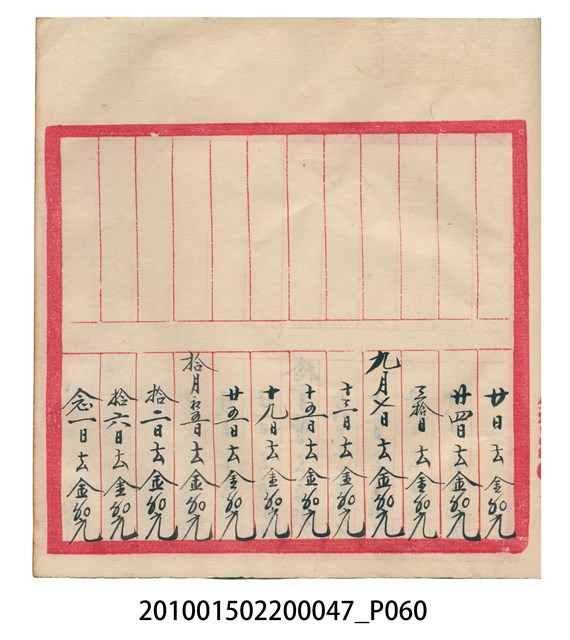 廿日去金元
廿四日去金元
三拾日去金元
九月七日去金元
十三日去金元
十五日去金元
十九日去金元
廿五日去金元
拾月初五日去金元
拾二日去金元
拾六日去金元
念一日去金元
201001502200047_P060